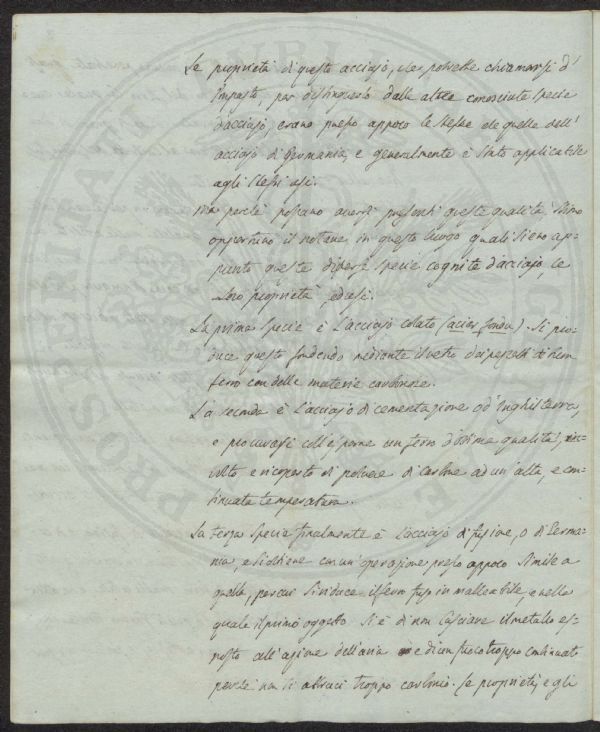 Le proprietà di questo acciajo, che potrebbe chiamarsi d'
Imposta, per distinguerlo dalle altre conosciute specie
d'acciajo, erano presso appoco le stesse che quelle dell'
acciajo di Germania, e generalmente è stato applicabile
agli stessi usi.
Ma perchè possano aversi presenti queste qualità, stimo
opportuno il notare in questo luogo quali sieno ap-
punto queste diverse specie cognite d'acciajo, le
loro proprietà, ed usi.
La prima specie è l'acciajo colato (acier fondu). Si pro-
duce questo fondendo mediante il vetro dei pezzetti di
ferro con delle materie carbonose.
La seconda è l'acciajo di cementazione od'Inghilterra,
e procurasi coll'esporre un ferro d'ottima qualità, rin-
volto e ricoperto di polvere di carbone ad un'alta, e con-
tinuata temperatura.
La terza specie finalmente è l'acciajo di fusione, o di Germa-
nia, e si ottiene con un'operazione presso appoco simile a
quella, per cui si riduce il ferro fuso in malleabile, e nella
quale il primo oggetto si è di non lasciare il metallo es-
posto all'azione dell'aria e di un fuoco troppo continuato
perchè non si abbruci troppo carbonio. Le proprietà, e gli